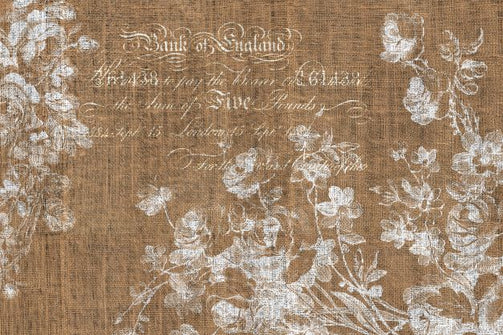 Bank of England
61438 to pay the Bearer 61438
the Sum of Five Pounds
Sept 15 London 15 Sept
For the